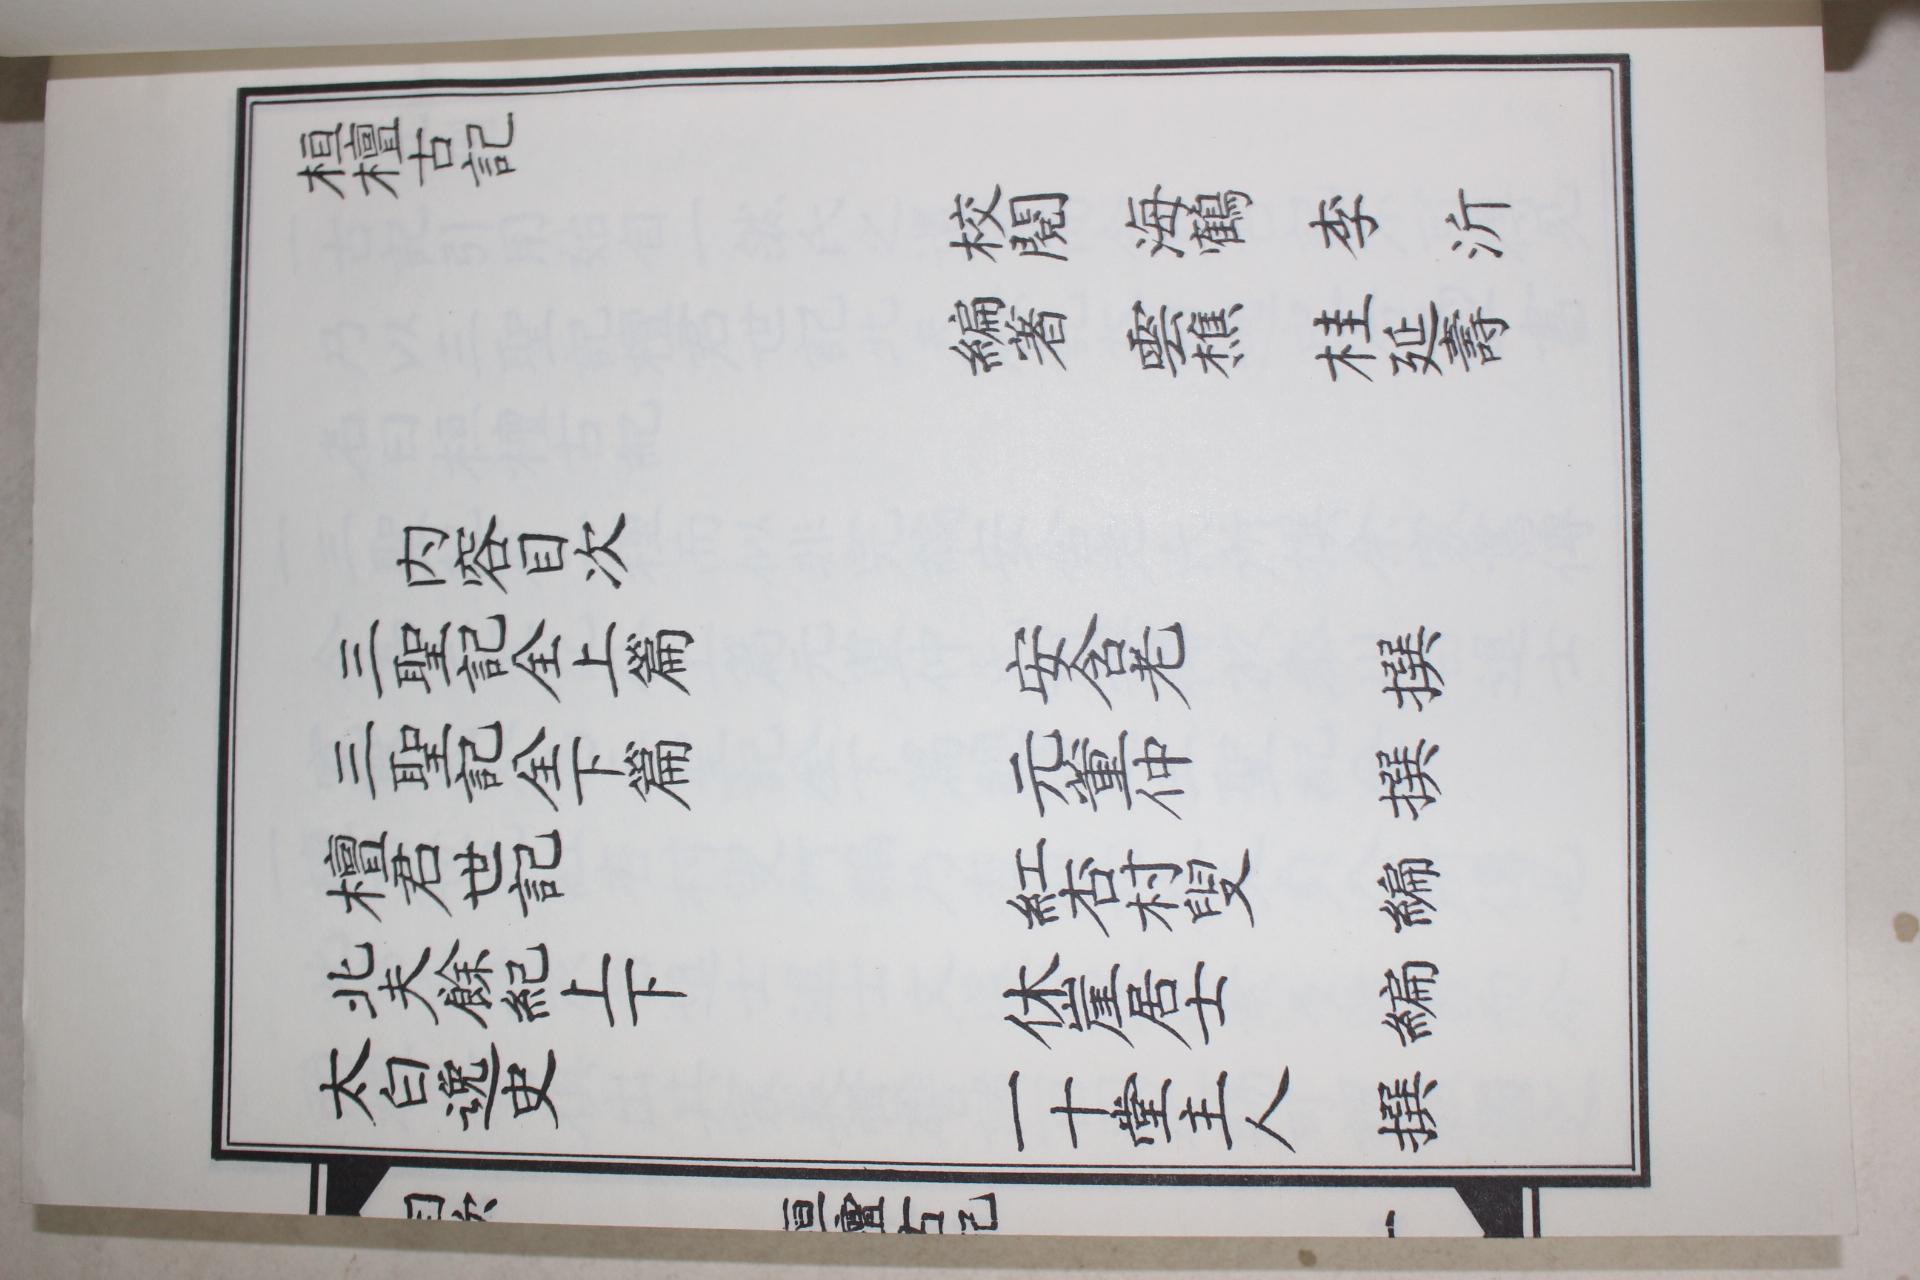 桓檀古記
校閱 海鶴 李 沂
編著 雲樵 桂延壽
内容目次
三聖記全上篇 安含老 撰
三聖記全下篇 元董仲 撰
檀君世記 紅杏村叟 編
北夫餘紀上下 休崖居士 編
太白逸史 一十堂主人 撰
目次
桓檀古記
一